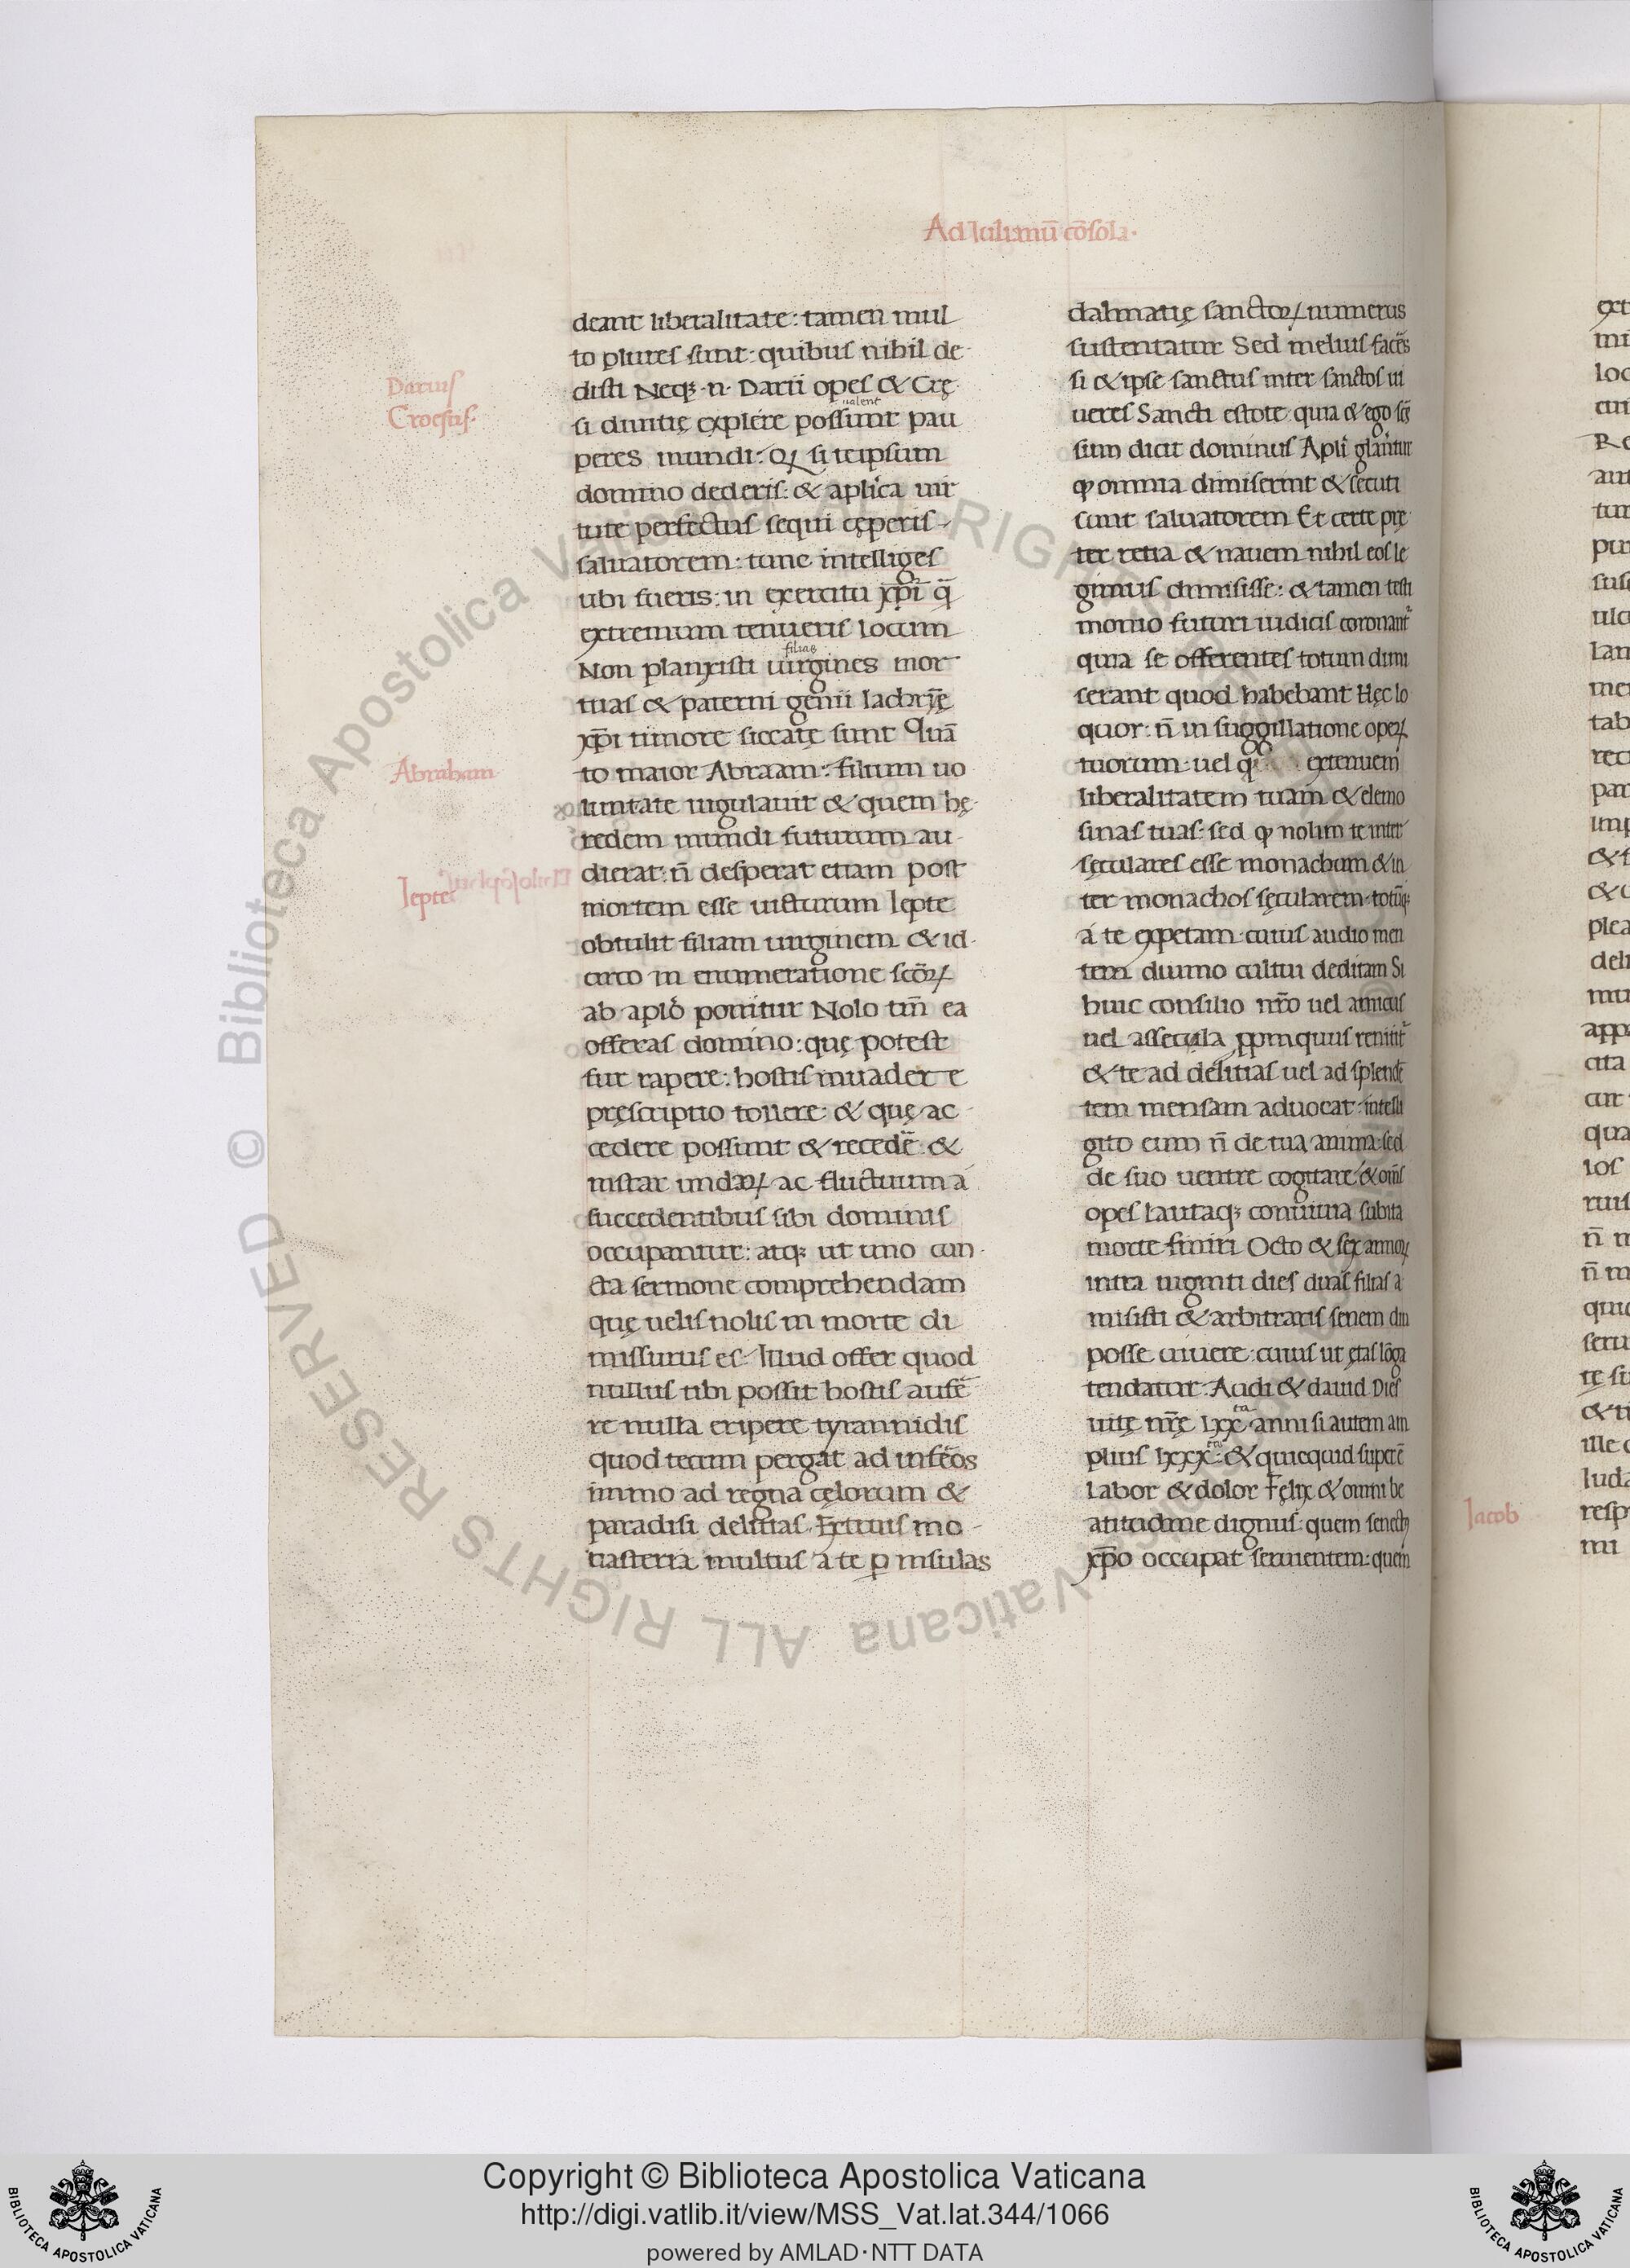 Ad Iulianū cōsola·
deant liberalitate: tamen mul
to plures sunt: quibus nihil de-
disti Neq; ·n· Darii opes & Crę
Darius
Croesus·
ualent
si diuitię explere possunt pau
peres mundi: Qꝫ si teipsum
domino dederis: & aplica uir
tute perfectus sequi cęperis-
saluatorem: tunc intelliges
ubi fueris: in exercitu xp̄i q̄
extremum tenueris locum
filias
Non planxisti uirgines mor
tuas & paterni genii lachrȳę
xp̄i timore siccatę sunt Quā
Abraham
to maior Abraam: filium uo
luntate iugulauit & quem hę-
redem mundi futurum au-
dierat: n̄ desperat etiam post
Iepte
mortem esse uicturum Iepte
obtulit filiam uirginem & id-
circo in enumeratione scōꝝ
ab aplo ponitur Nolo tm̄ ea
offeras domino: quę potest
fur rapere: hostis inuadere
pręscriptio tollere: & quę ac-
cedere possunt & recedē: &
instar undaꝝ ac fluctuum á
succedentibus sibi dominis
occupantur: atq; ut uno cun-
cta sermone comprehendam
quę uelis nolis in morte di
missurus es: Illud offer quod
nullus tibi possit hostis aufē
re nulla eripere tyrannidis
quod tecum pergat ad infēos
immo ad regna cęlorum &
paradisi delitias. Extruis mo-
nasteria multus á te ꝑ insulas
dalmatię sanctoꝝ numerus
sustentatur Sed melius facēs
si & ipse sanctus inter sanctos ui
ueres Sancti estote quia & ego scs̄
sum dicit dominus Apli gliantur
ꝙ omnia dimiserint & secuti
sunt saluatorem Et certe prę
ter retia & nauem nihil eos le
gimus dimisisse: & tamen testi
monio futuri iudicis coronant̄
quia se offerentes totum dimi
serant quod habebant Hęc lo
quor: n̄ in suggillatione opeꝝ
tuorum: uel q extenuem
liberalitatem tuam & elemo
sinas tuas: sed ꝙ nolim te inter
sęculares esse monachum & in
ter monachos sęcularem: totūq;
á te expetam: cuius audio men
tem diuino cultui deditam Si
huic consilio nr̄o uel amicus
uel assecula ꝓpinquus renitit̄
& te ad delitias uel ad splendē
tem mensam aduocat: intelli
gito eum n̄ de tua anima: sed
de suo uentre cogitare & om̄s
opes lautaq; conuiuia subita
morte finiri Octo & sex annoꝝ
intra uiginti dies duas filias a
misisti & arbitraris senem diu
posse uiuere: cuius ut ętas lōga
tendatur: Audi & dauid Dies
ta
uitę nr̄ę lxx anni si autem am
ta
plius lxxx: & quicquid superē
labor & dolor Fęlix & omni be
atitudine dignus: quem senectꝰ
xp̄o occupat seruientem: quem
Iacob
Copyright © Biblioteca Apostolica Vaticana
http://digi.vatlib.it/view/MSS_Vat.lat.344/1066
powered by AMLAD·NTT DATA